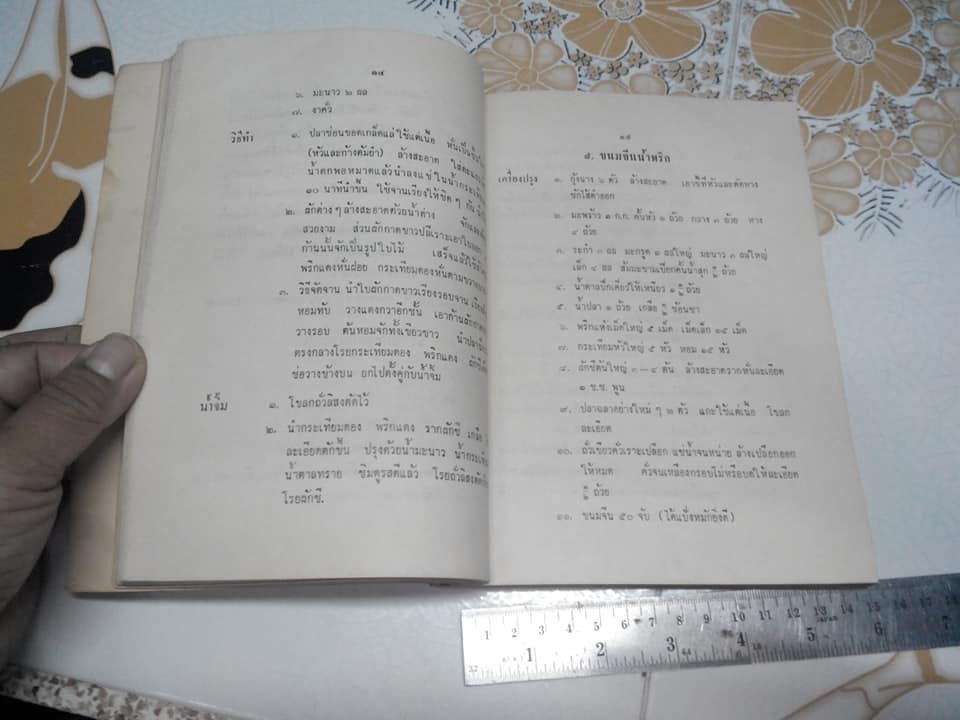 ๑๔
๖. มะนาว ๒ ผล
๗. งาคั่ว
วิธีทำ ๑. ปลาช่อนขอดเกล็ดแล่ใช้แต่เนื้อ หั่นเป็นชิ้น
(หัวและก้างต้มยำ) ล้างสะอาด ใส่ตะแกรง
น้ำตกพอหมาดแล้วนำลงแช่ในน้ำกระเทียม
๑๐ นาทีนำขึ้น ใช้จานเรียงให้ชิด ๆ กัน
๒. ผักต่าง ๆ ล้างสะอาดด้วยน้ำด่าง จัก
สวยงาม ส่วนผักกาดขาวปลีเราะเอาใบออก
ก้านนั้นจักเป็นรูปใบไม้ เสร็จแล้วใช้
พริกแดงหั่นฝอย กระเทียมดองหั่นตามขวาง
๓. วิธีจัดจาน นำใบผักกาดขาวเรียงรอบจาน
หอมทับ วางแตงกวาอีกชั้น เอาก้านผักกาด
วางรอบ ต้นหอมจักทั้งเขียวขาว นำปลา
ตรงกลางโรยกระเทียมดอง พริกแดง ผักชี
ช่อวางข้างบน ยกไปตั้งคู่กับน้ำจิ้ม
น้ำจิ้ม ๑. โขลกถั่วลิสงตัดไว้
๒. นำกระเทียมดอง พริกแดง รากผักชี เกลือ
ละเอียดตักขึ้น ปรุงด้วยน้ำมะนาว น้ำกระเทียม
น้ำตาลทราย ชิมดูรสดีแล้ว โรยถั่วลิสงตัด
โรยผักชี.
๑๕
๗. ขนมจีนน้ำพริก
เครื่องปรุง ๑. กุ้งนาง ๖ ตัว ล้างสะอาด เอาขี้ที่หัวและตัดหาง
ชักไส้ดำออก
๒. มะพร้าว ๑ ก.ก. คั้นหัว ๑ ถ้วย กลาง ๓ ถ้วย หาง
๔ ถ้วย
๓. ระกำ ๓ ผล มะกรูด ๑ ผลใหญ่ มะนาว ๓ ผลใหญ่
เล็ก ๔ ผล ส้มมะขามเปียกคั้นน้ำสุก ถ้วย
๔. น้ำตาลปึกเคี่ยวให้เหนียว ๑ ถ้วย
๕. น้ำปลา ๑ ถ้วย เกลือ ช้อนชา
๖. พริกแห้งเม็ดใหญ่ ๕ เม็ด เม็ดเล็ก ๑๕ เม็ด
๗. กระเทียมหัวใหญ่ ๕ หัว หอม ๑๕ หัว
๘. ผักชีต้นใหญ่ ๓—๔ ต้น ล้างสะอาดรากหั่นละเอียด
๑ ช.ช. พูน
๙. ปลาฉลาดย่างใหม่ ๆ ๒ ตัว แกะใช้แต่เนื้อ โขลก
ละเอียด
๑๐. ถั่วเขียวคั่วเราะเปลือก แช่น้ำจนหน่าย ล้างเปลือกออก
ให้หมด คั่วจนเหลืองกรอบโม่หรือบดให้ละเอียด
ถ้วย
๑๑. ขนมจีน ๕๐ จับ (ได้แป้งหมักยิ่งดี)
1 2 3 4 5 6 7 8 9 10 11 12 13 14 15 16 17 18
1 2 3 4 5 6 7